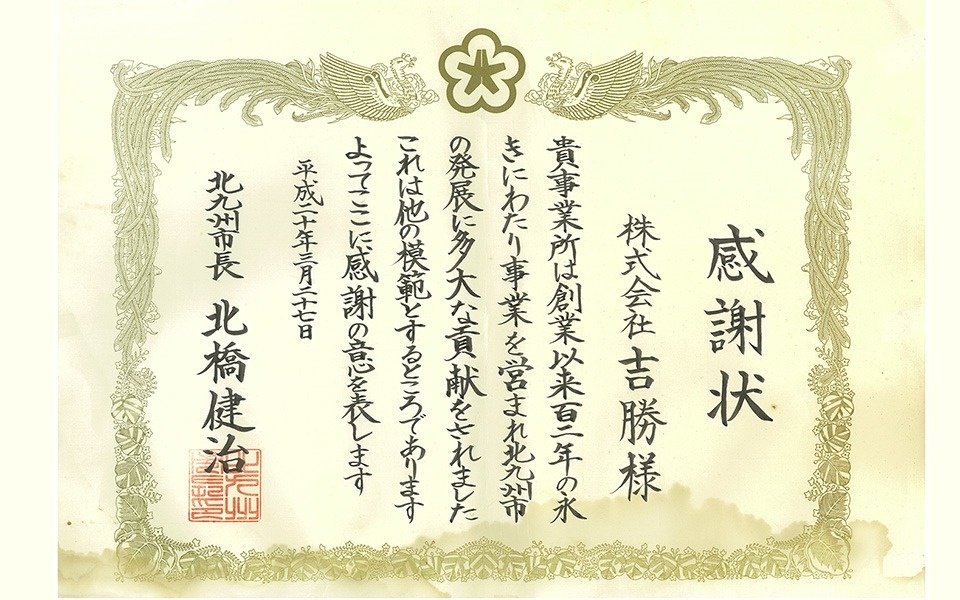 感謝状
株式会社吉勝様
貴事業所は創業以来百二年の永
きにわたり事業を営まれ北九州市
の発展に多大な貢献をされました
これは他の模範とするところであります
よってここに感謝の意を表します
平成二十年三月二十七日
北九州市長 北橋健治